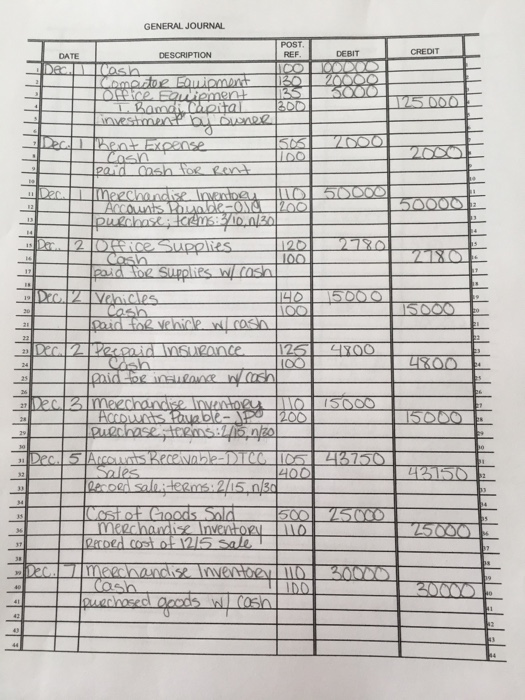 GENERAL JOURNAL
DATE DESCRIPTION POST. REF. DEBIT CREDIT
1 Dec. 1 Cash 100 100000
Computer Equipment 130 20000
Office Equipment 135 5000
4 T. Ramdi, Capital 300 125000
investment by owner
Dec. 1 Rent Expense 505 2000
Cash 100 2000
paid cash for Rent
11 Dec. 1 Merchandise Inventory 110 50000
12 Accounts Payable- 200 50000 12
13 purchase; terms: 3/10, n/30
14
15 Dec. 2 Office Supplies 120 2780 15
16 Cash 100 2780 16
17 paid for supplies w/ cash 17
18
19 Dec. 2 Vehicles 140 15000 19
20 Cash 100 15000 20
21 paid for vehicle w/ cash 21
22
23 Dec. 2 Prepaid Insurance 125 4800 23
24 Cash 100 4800 24
25 paid for insurance w/ cash 25
26
27 Dec. 3 Merchandise Inventory 110 15000 27
28 Accounts Payable-JPO 200 15000 28
29 purchase; terms: 2/15, n/30 29
30
31 Dec. 5 Accounts Receivable-DTCC 105 43750 31
32 Sales 400 43750 32
33 Record sale; terms: 2/15, n/30 33
34
35 Cost of Goods Sold 500 25000 35
36 Merchandise Inventory 110 25000 36
37 Record cost of 12/5 sale 37
38
39 Dec. 7 Merchandise Inventory 110 30000 39
40 Cash 100 30000 40
41 purchased goods w/ cash 41
42 42
43 43
44 44